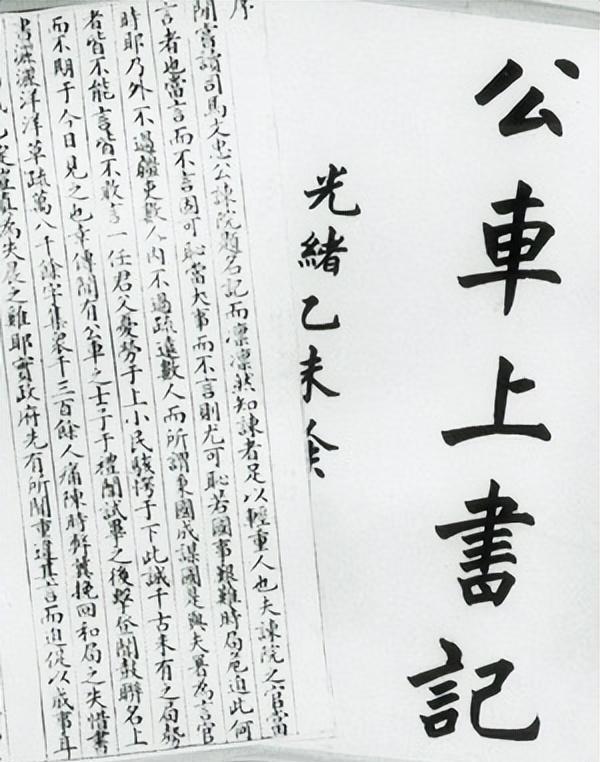 公車上書記
光緒乙未
序
聞嘗讀司馬文忠公諫院題名記而凛凛然知諫者足以輕重人也夫諫院之官當
言者也當言而不言固可恥當大事而不言則尤可恥若國事艱難時局危迫此何
時耶乃外不過疆吏數人內不過疏遠數人而所謂秉國成謀國是與夫署為言官
者皆不能言皆不敢言一任君父憂勞于上小民駭愕于下此誠千古未有之局勢
而不期于今日見之也幸傳聞有公車之士子于禮闈試畢之後擊登聞鼓聯名上
書灑灑洋洋草疏萬八千餘字集眾千三百餘人痛陳時弊冀挽回和局之失惜書
已定豈真為失晨之雞耶實政府先有所聞其言而迫促以成事耳